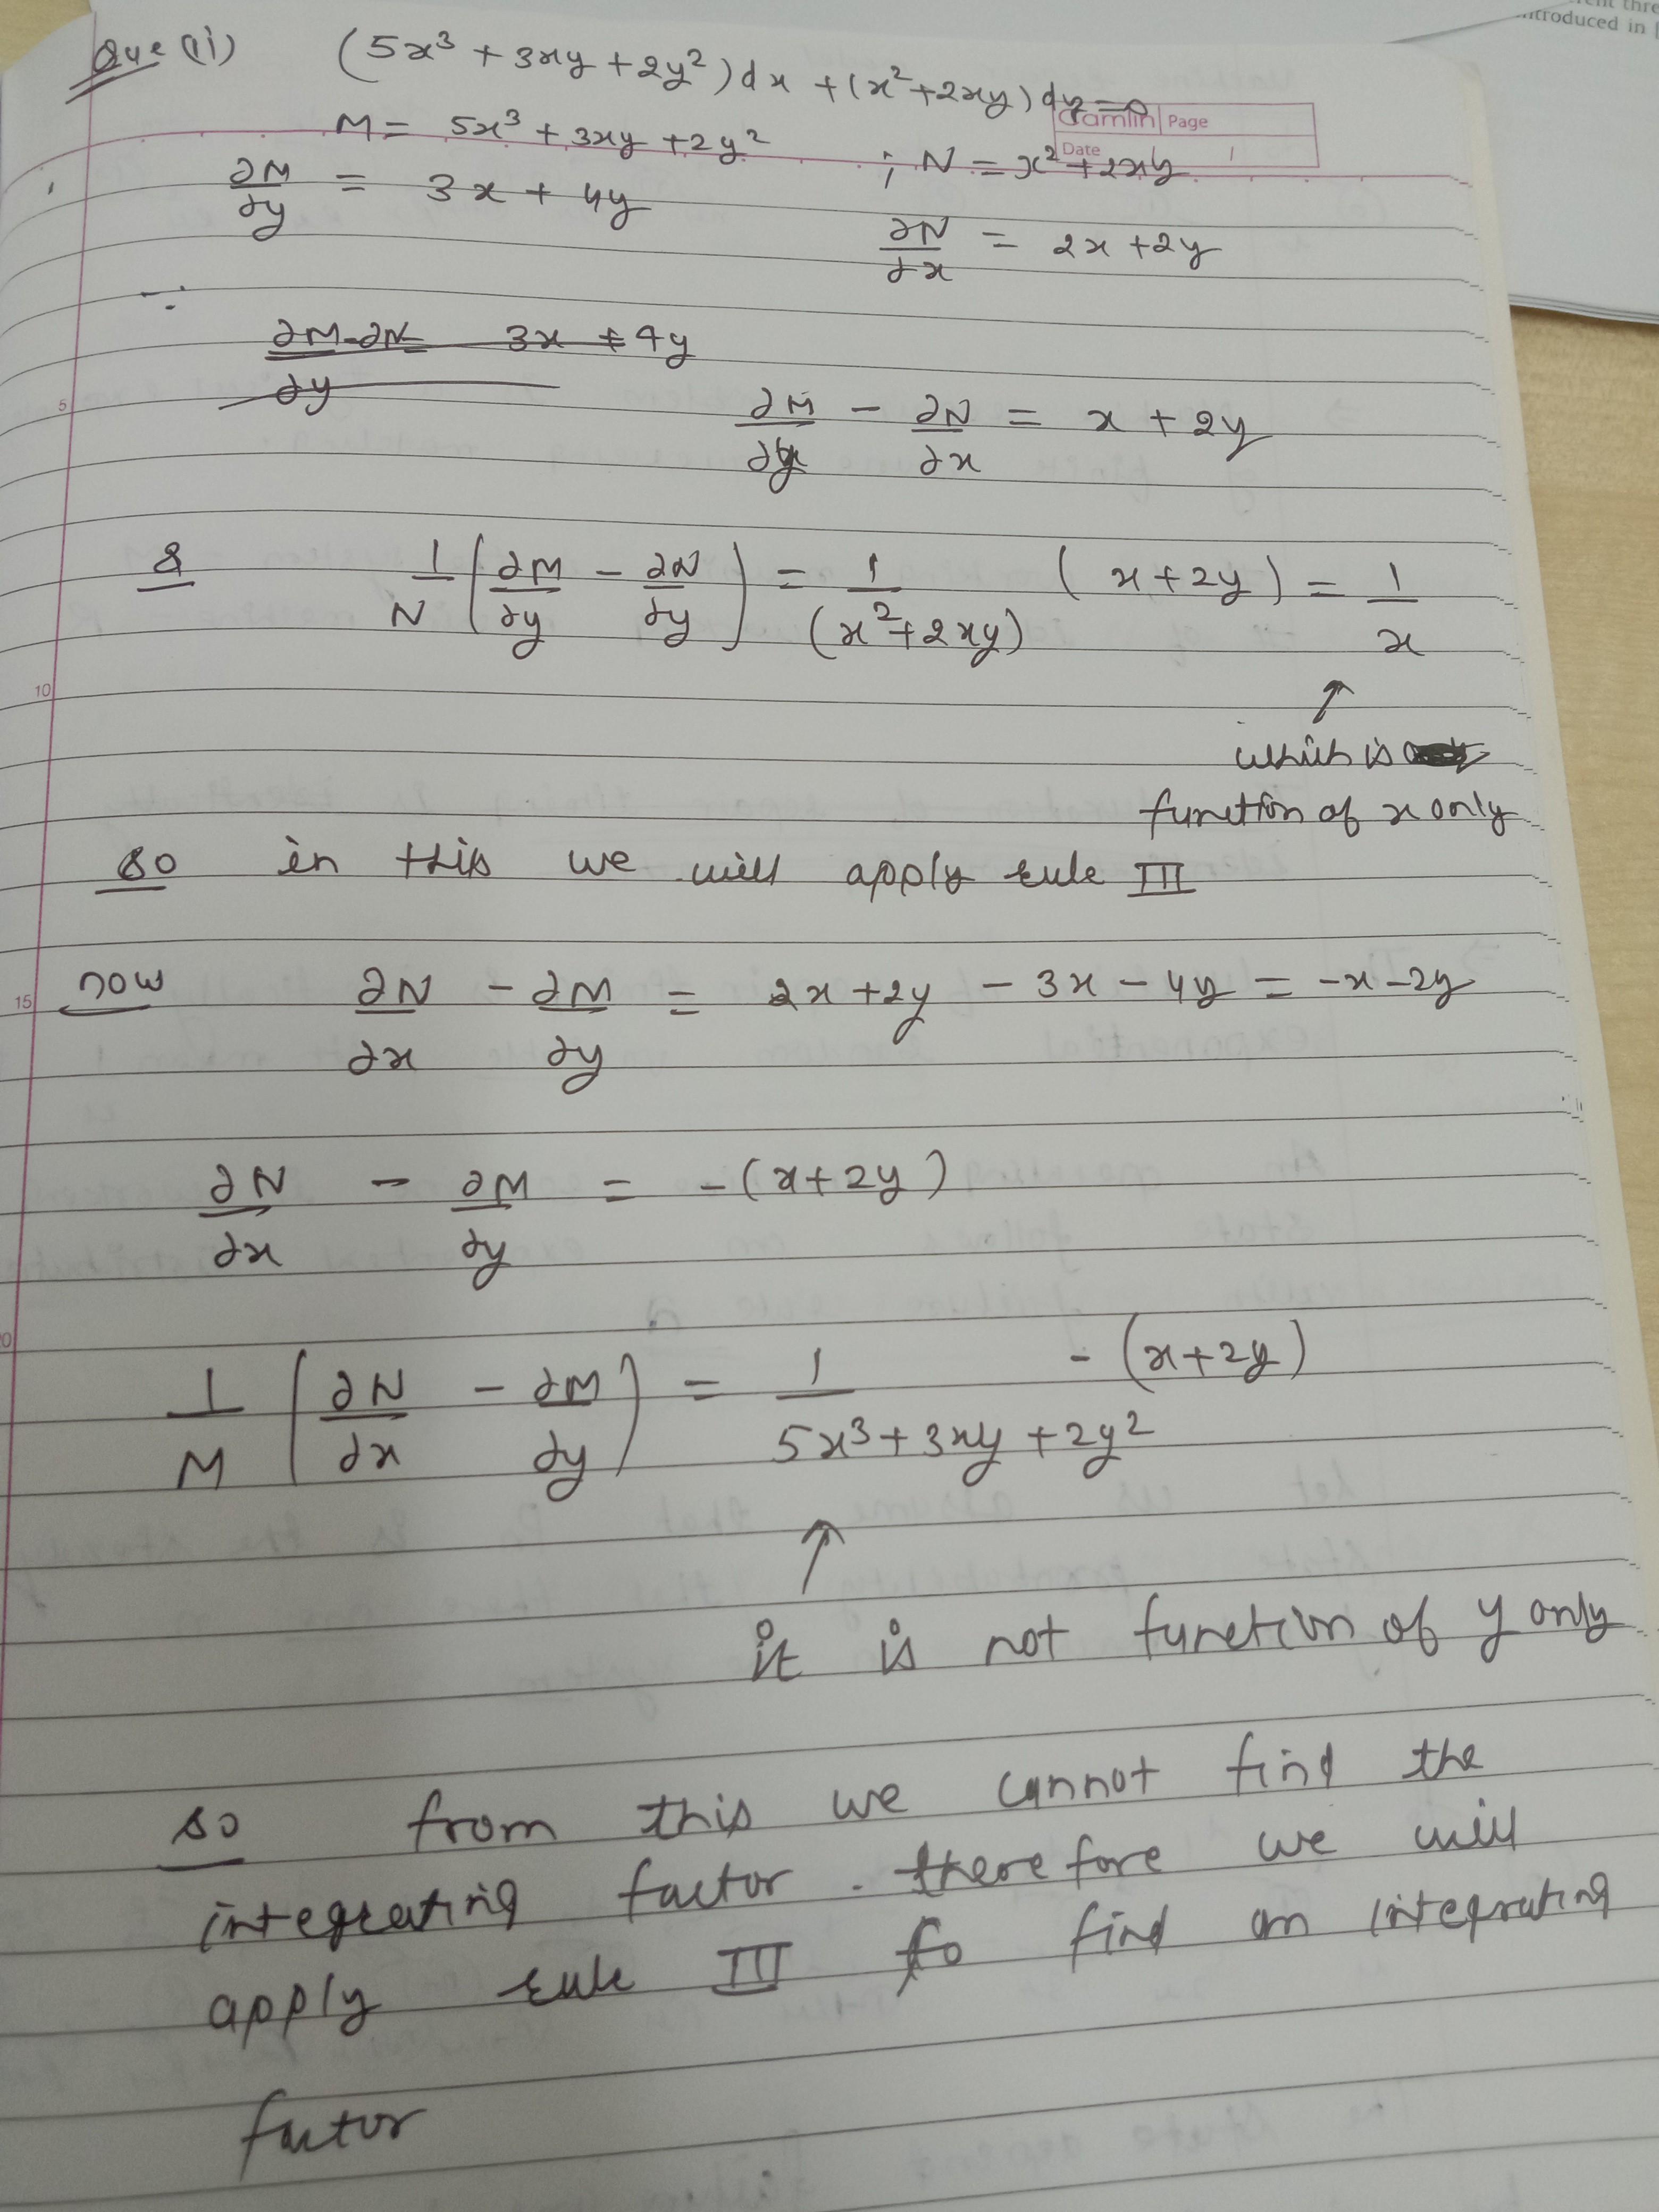 ...rent thre
...ntroduced in [
Que (ii) (5x³ + 3xy + 2y²)dx + (x² + 2xy)dy = 0
Camlin Page
Date 1
M = 5x³ + 3xy + 2y² ; N = x² + 2xy
∂M/∂y = 3x + 4y
∂N/∂x = 2x + 2y
∵
∂M - ∂N/∂y 3x + 4y
5
∂M/∂y − ∂N/∂x = x + 2y
& 1/N (∂M/∂y − ∂N/∂y) = 1/(x² + 2xy) (x + 2y) = 1/x
10
↑
which is
function of x only
so in this we will apply rule III
15
now ∂N/∂x − ∂M/∂y = 2x + 2y − 3x − 4y = −x − 2y
∂N/∂x − ∂M/∂y = −(x + 2y)
1/M (∂N/∂x − ∂M/∂y) = 1/5x³ + 3xy + 2y² −(x + 2y)
↑
it is not function of y only
so from this we cannot find the
integrating factor. therefore we will
apply rule III to find an integrating
factor